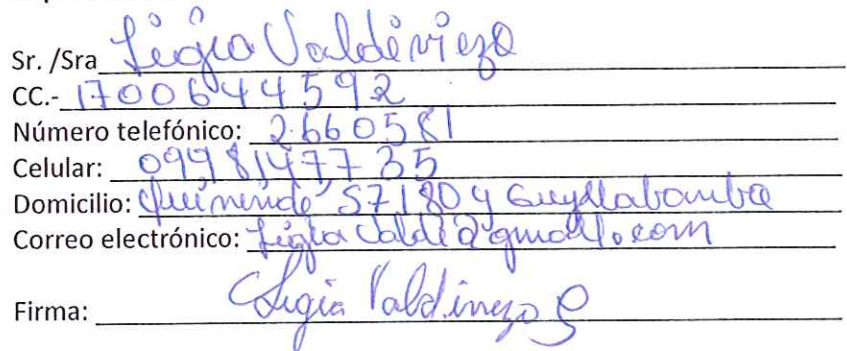 Sr. /Sra Ligia Valdiviezo
CC.- 1700644592
Número telefónico: 2660581
Celular: 0998147735
Domicilio: Quinindé S7180 y Guayllabamba
Correo electrónico: @gmail.com
Firma: Ligia Valdiviezo